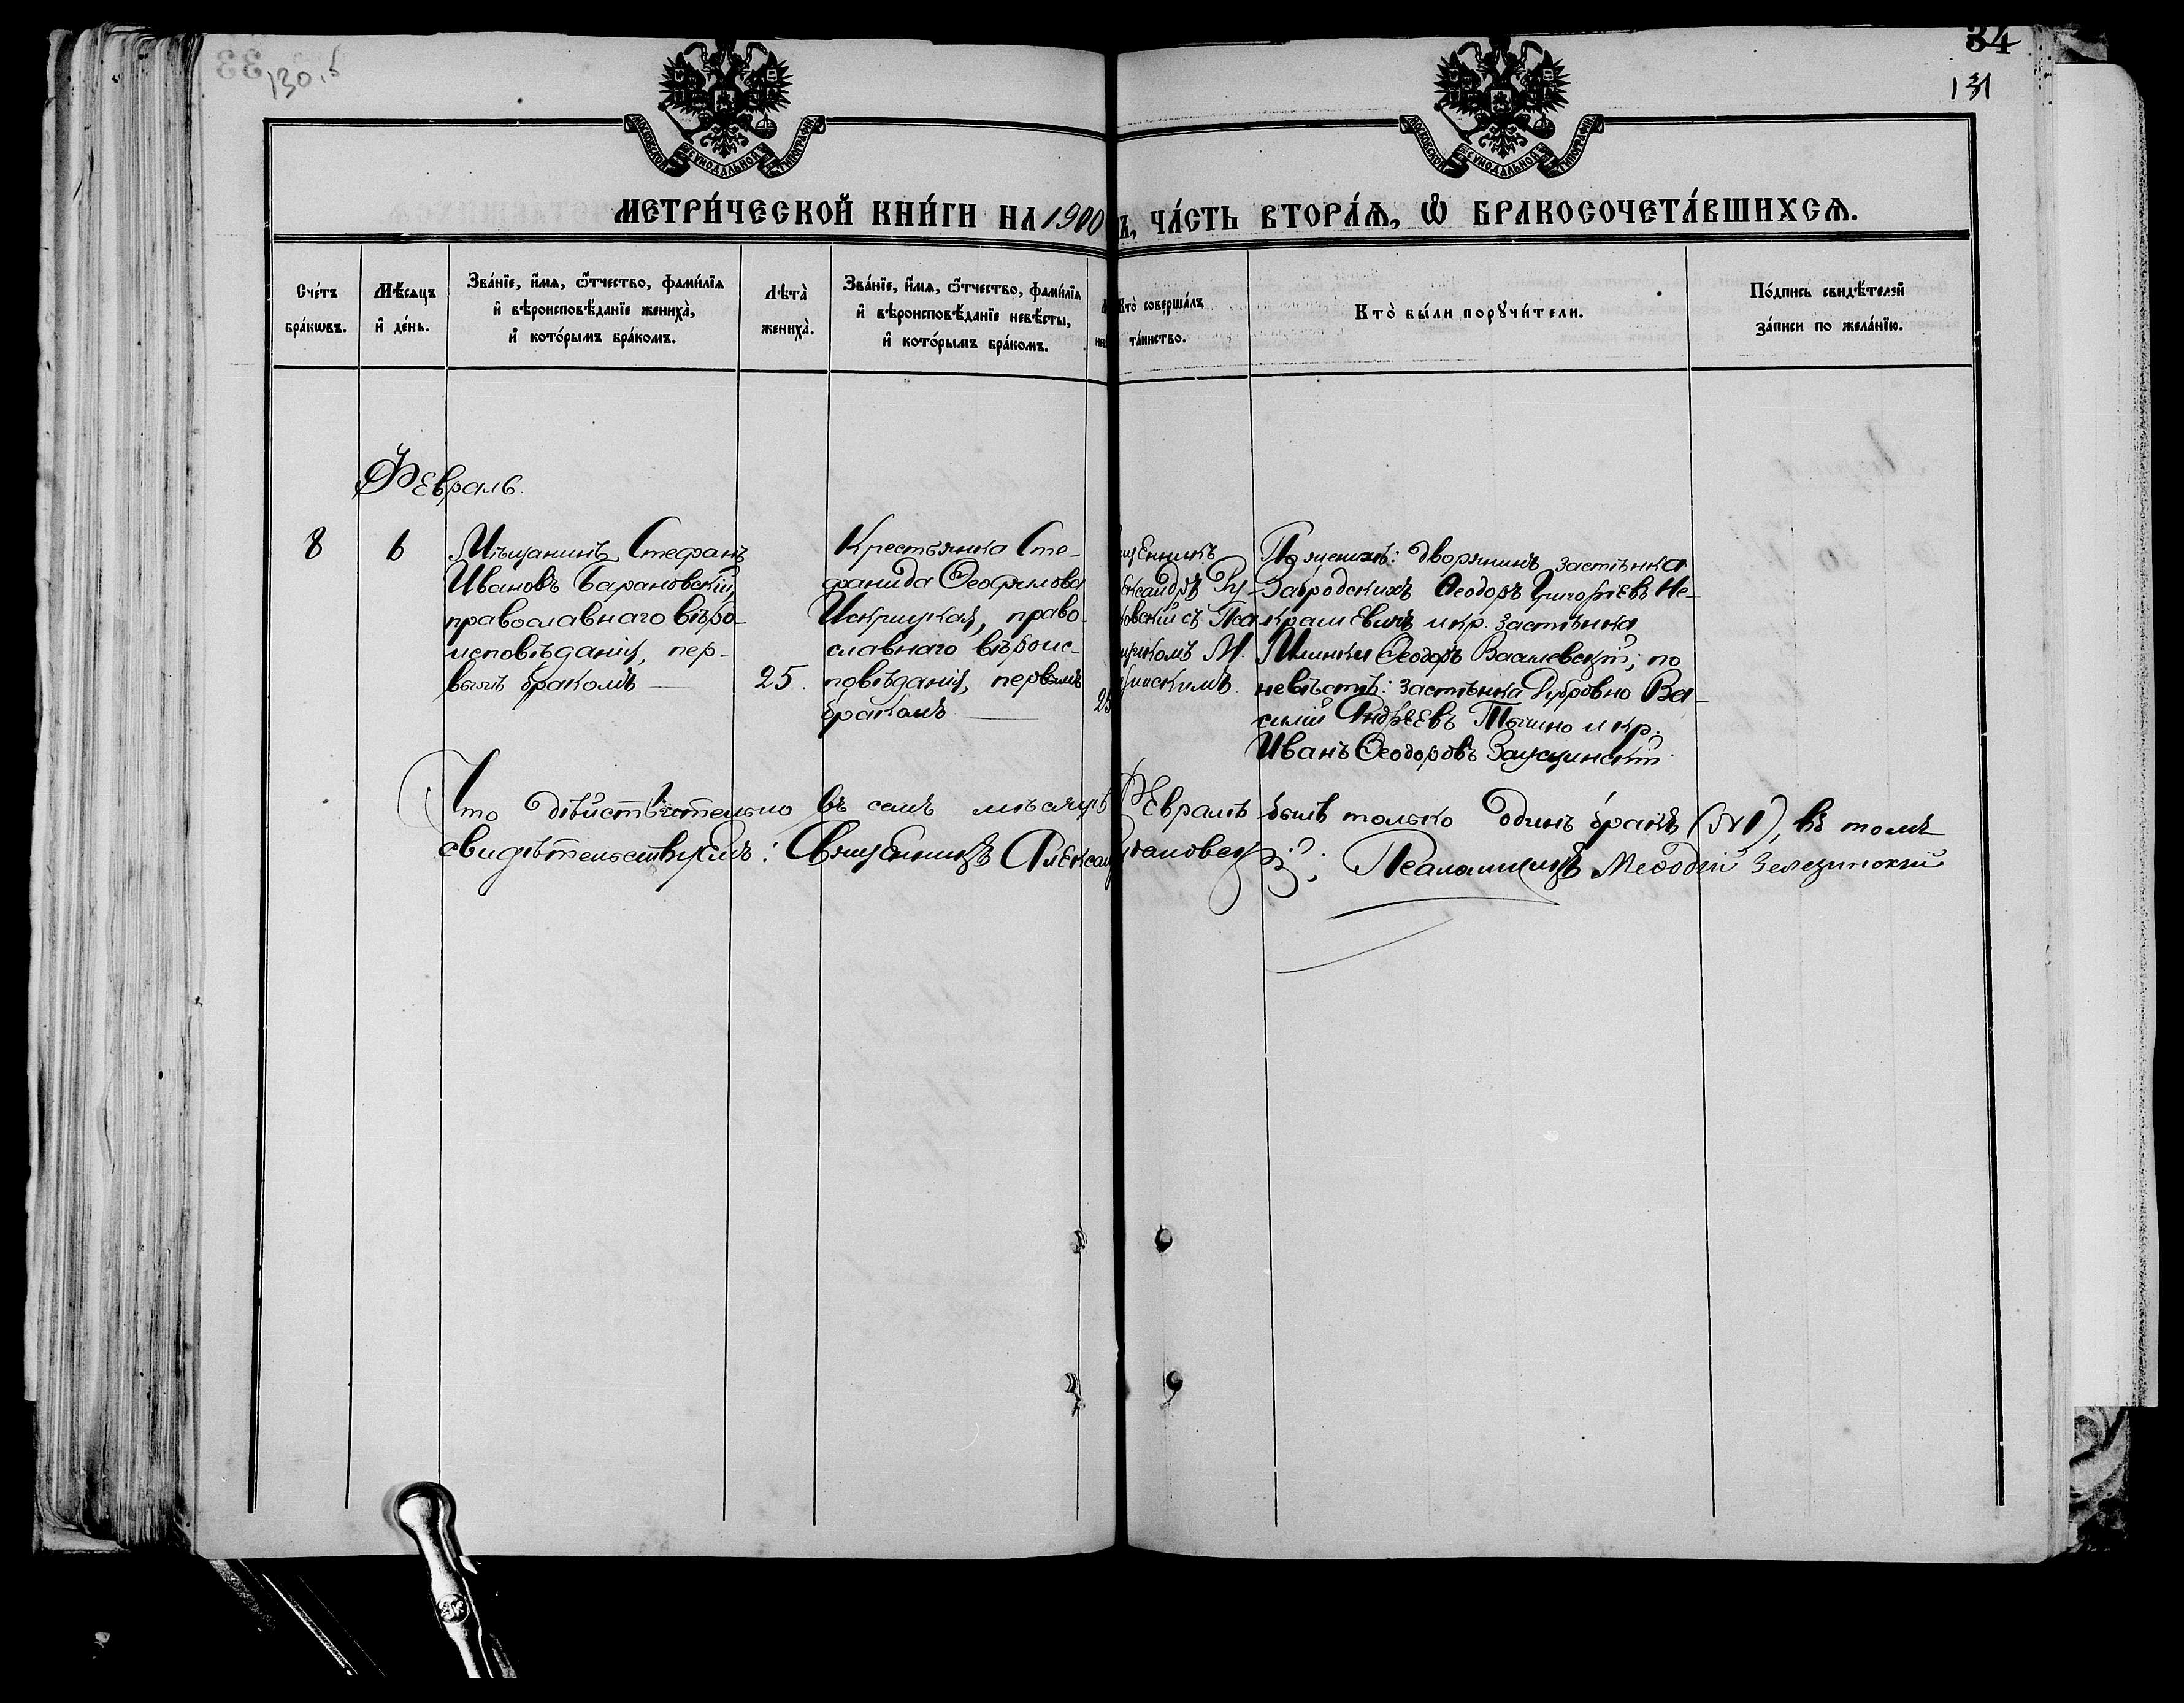 33
130,5
34
131
МОСКОВСКОЙ СѴНОДАЛЬНОЙ ТИПОГРАФІИ
МОСКОВСКОЙ СѴНОДАЛЬНОЙ ТИПОГРАФІИ
МЕТРИ́ЧЕСКОЙ КНИ́ГИ НА 1900
Ъ, ЧА́СТЬ ВТОРА́Ѧ, Ѡ҆ БРАКОСОЧЕТА́ВШИХСѦ.
Сче́тъ
бра́кѡвъ.
Мѣ́сѧцъ
и҆ де́нь.
Зва́нїе, и҆́мѧ, ѻ҆́тчество, фами́лїѧ
и҆ вѣроисповѣ́данїе жениха̀,
и҆ кото́рымъ бра́комъ.
Лѣта̀
жениха̀.
Зва́нїе, и҆́мѧ, ѻ҆́тчество, фами́лїѧ
и҆ вѣроисповѣ́данїе невѣ́сты,
и҆ кото́рымъ бра́комъ.
Кто̀ соверша́лъ
та́инство.
Кто̀ бы́ли порꙋчи́тели.
По́дпись свидѣ́телей
за́писи по жела́нїю.
Февраль.
8
6
Мѣщанинъ Стефанъ
Ивановъ Барановскій,
православнаго вѣро-
исповѣданія, пер-
вымъ бракомъ
25.
Крестьянка Сте-
фанида Ѳеофилова
Искрицкая, право-
славнаго вѣроис-
повѣданія, первымъ
бракомъ
25
щенникъ
ександръ Ру-
новскій съ Пса
щикомъ М.
зинскимъ.
По женихѣ: дворянинъ застѣнка
Загродскихъ Ѳеодоръ Григоріевъ Не-
крашевичъ и кр. застѣнка
Ѳеодоръ Васілевскій; по
невѣстѣ: застѣнка Дубровно Ва-
силій Андреевъ и кр.
Иванъ Ѳеодоровъ
Что дѣйствительно въ семъ мѣсяцѣ Февралѣ былъ только одинъ бракъ (№1), въ томъ
свидѣтельствуемъ: Священникъ Алексан новскій; Псаломщикъ Меѳодій Зелезинскій